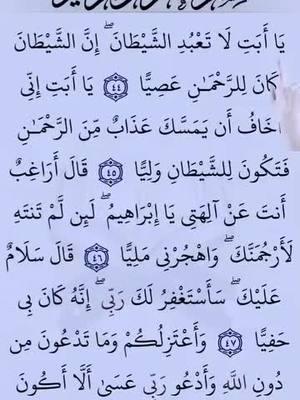 يَا أَبَتِ لَا تَعْبُدِ الشَّيْطَانَ ۖ إِنَّ الشَّيْطَانَ
كَانَ لِلرَّحْمَٰنِ عَصِيًّا ﴿٤٤﴾ يَا أَبَتِ إِنِّي
أَخَافُ أَن يَمَسَّكَ عَذَابٌ مِّنَ الرَّحْمَٰنِ
فَتَكُونَ لِلشَّيْطَانِ وَلِيًّا ﴿٤٥﴾ قَالَ أَرَاغِبٌ
أَنتَ عَنْ آلِهَتِي يَا إِبْرَاهِيمُ ۖ لَئِن لَّمْ تَنتَهِ
لَأَرْجُمَنَّكَ ۖ وَاهْجُرْنِي مَلِيًّا ﴿٤٦﴾ قَالَ سَلَامٌ
عَلَيْكَ ۖ سَأَسْتَغْفِرُ لَكَ رَبِّي ۖ إِنَّهُ كَانَ بِي
حَفِيًّا ﴿٤٧﴾ وَأَعْتَزِلُكُمْ وَمَا تَدْعُونَ مِن
دُونِ اللَّهِ وَأَدْعُو رَبِّي عَسَىٰ أَلَّا أَكُونَ